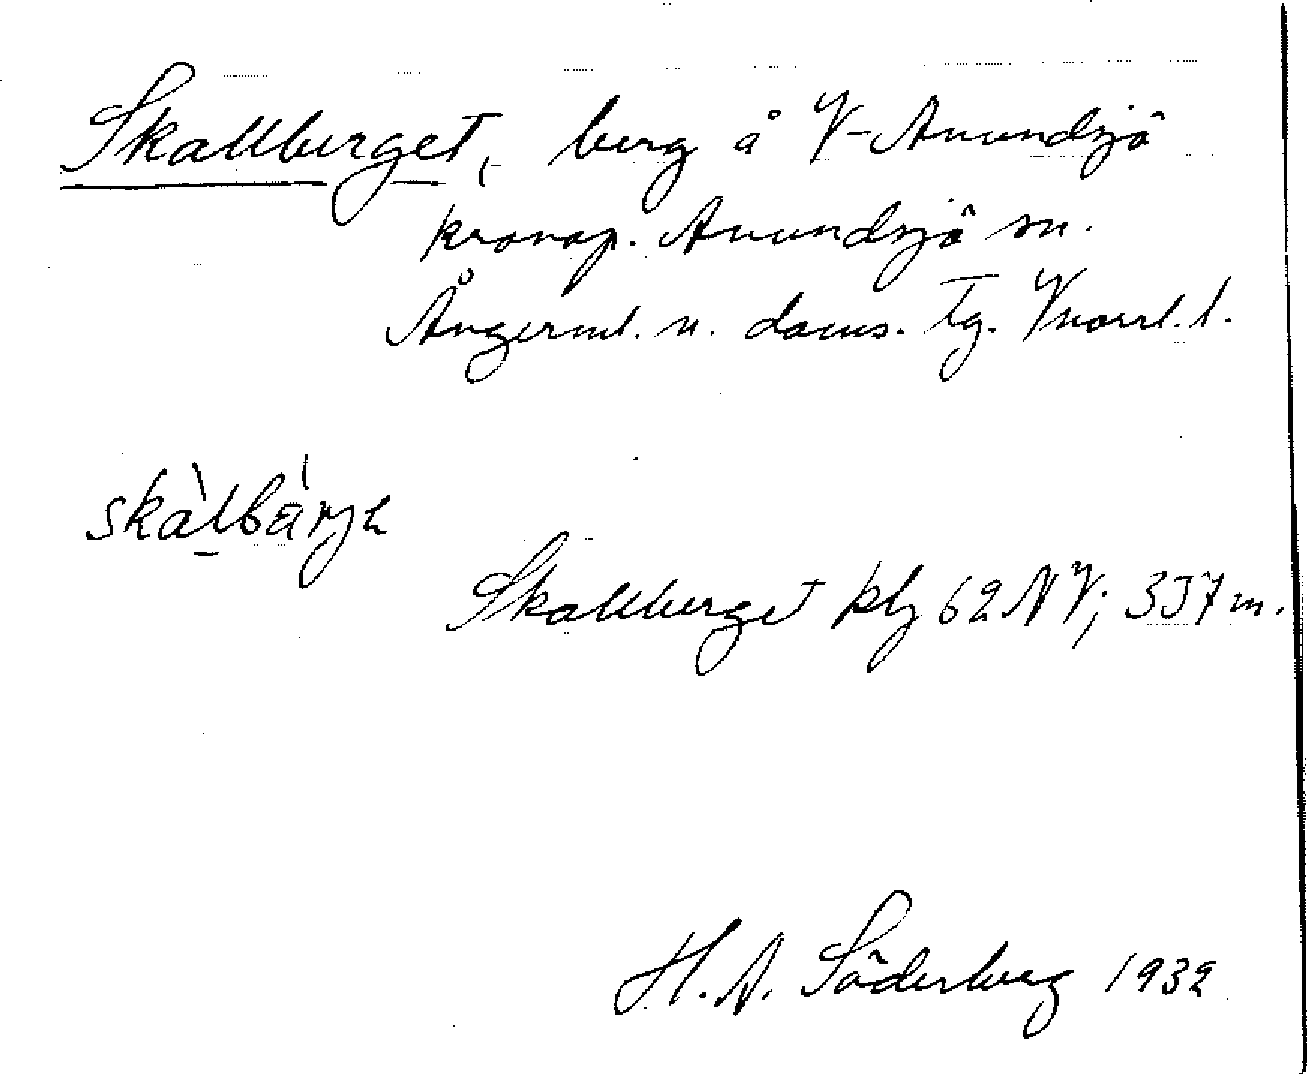 Skallberget, berg å V-Anundsjö
kronop. Anundsjö sn.
Ångerml. n. doms. tg. Vnorrl. l.
skàlbä́rjə
Skallberget kbl 62 NV; 337 m.
H. A. Söderberg 1932